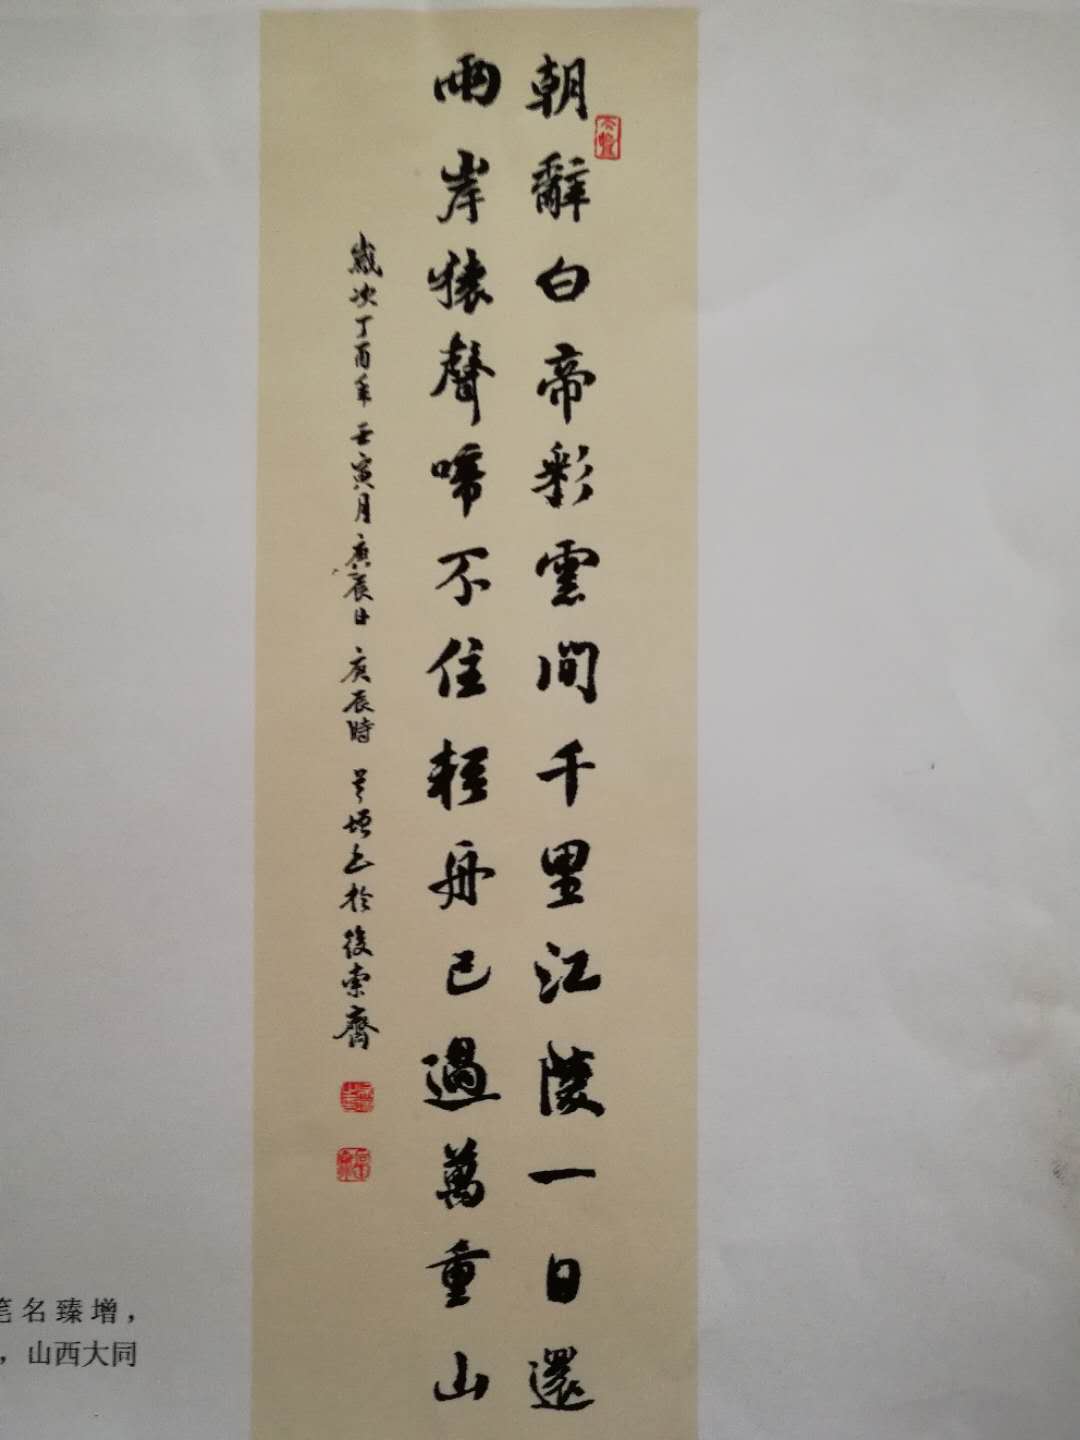 朝辭白帝彩雲間千里江陵一日還
兩岸猿聲啼不住輕舟已過萬重山
歲次丁酉年壬寅月庚辰日庚辰時 增書於後索齋
笔名臻增，
，山西大同